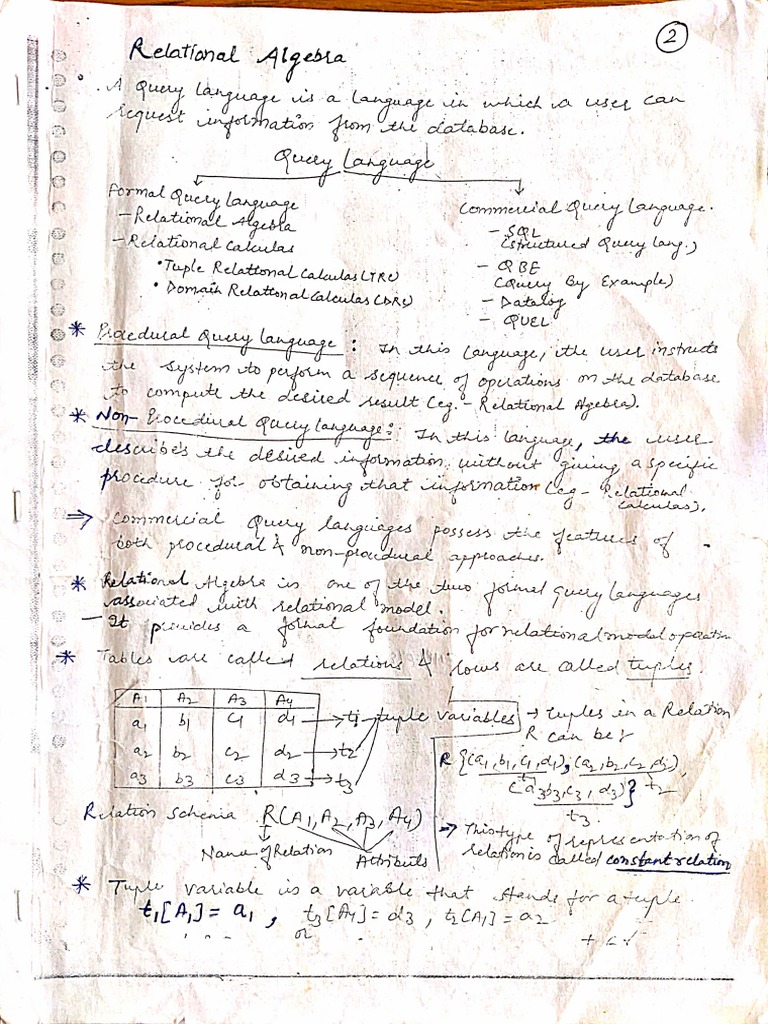 2
Relational Algebra
A Query language is a language in which a user can
request information from the database.
Query Language
Formal Query Language
- Relational Algebra
- Relational Calculas
• Tuple Relational Calculas (TRC)
• Domain Relational Calculas (DRC)
Commercial Query Language.
- SQL
(Structured Query Lang.)
- QBE
(Query By Example)
- Datalog
- QUEL
* Procedural Query language : In this language, the user instructs
the system to perform a sequence of operations on the database
to compute the desired result (eg. - Relational Algebra).
* Non-Procedural Query language : In this language, the user
describes the desired information without giving a specific
procedure for obtaining that information (eg - Relational
Calculas).
⇒ Commercial Query languages possess the features of
both procedural & non-procedural approaches.
* Relational Algebra is one of the two formal query languages
associated with relational model.
- It provides a formal foundation for relational model operation
* Tables are called relations & rows are called tuples.
A1 A2 A3 A4
a1 b1 c1 d1 → t1
a2 b2 c2 d2 → t2
a3 b3 c3 d3 → t3
tuple variables
→ tuples in a Relation
R can be
R {(a1,b1,c1,d1), (a2,b2,c2,d2),
t1 t2
(a3,b3,c3,d3)}
t3
⇒ This type of representation of
relation is called constant relation
Relation Schema R(A1,A2,A3,A4)
Name of Relation
Attributes
* Tuple variable is a variable that stands for a tuple.
t1[A1] = a1, t3[A4] = d3, t2[A1] = a2
or